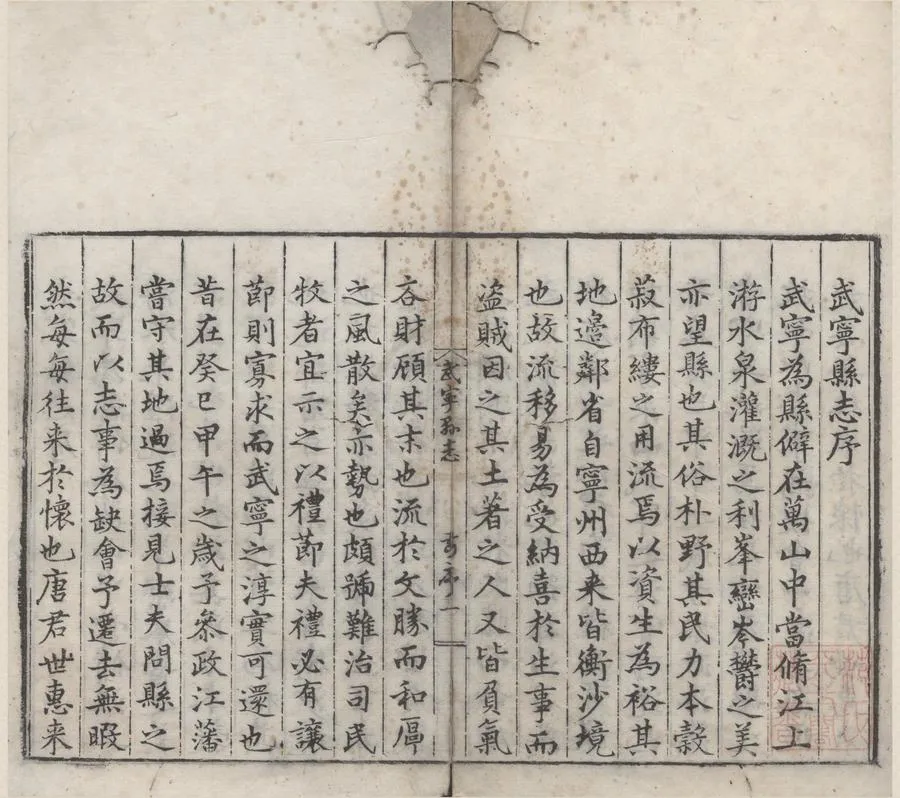 武寧縣志序
武寧為縣僻在萬山中當脩江上
游水泉灌溉之利峯巒岑欝之美
亦望縣也其俗朴野其民力本穀
菽布縷之用流焉以資生為裕其
地邉鄰省自寧州西来皆衡沙境
也故流移易為受納喜於生事而
盜賊因之其土著之人又皆負氣
武寧縣志
序一
吝財顧其末也流於文勝而和厚
之風散矣亦勢也頗號難治司民
牧者宜示之以禮節夫禮必有讓
節則寡求而武寧之淳實可還也
昔在癸巳甲午之歲予叅政江藩
嘗守其地過焉接見士夫問縣之
故而以志事為缺會予遷去無暇
然每每往来於懷也唐君世惠来